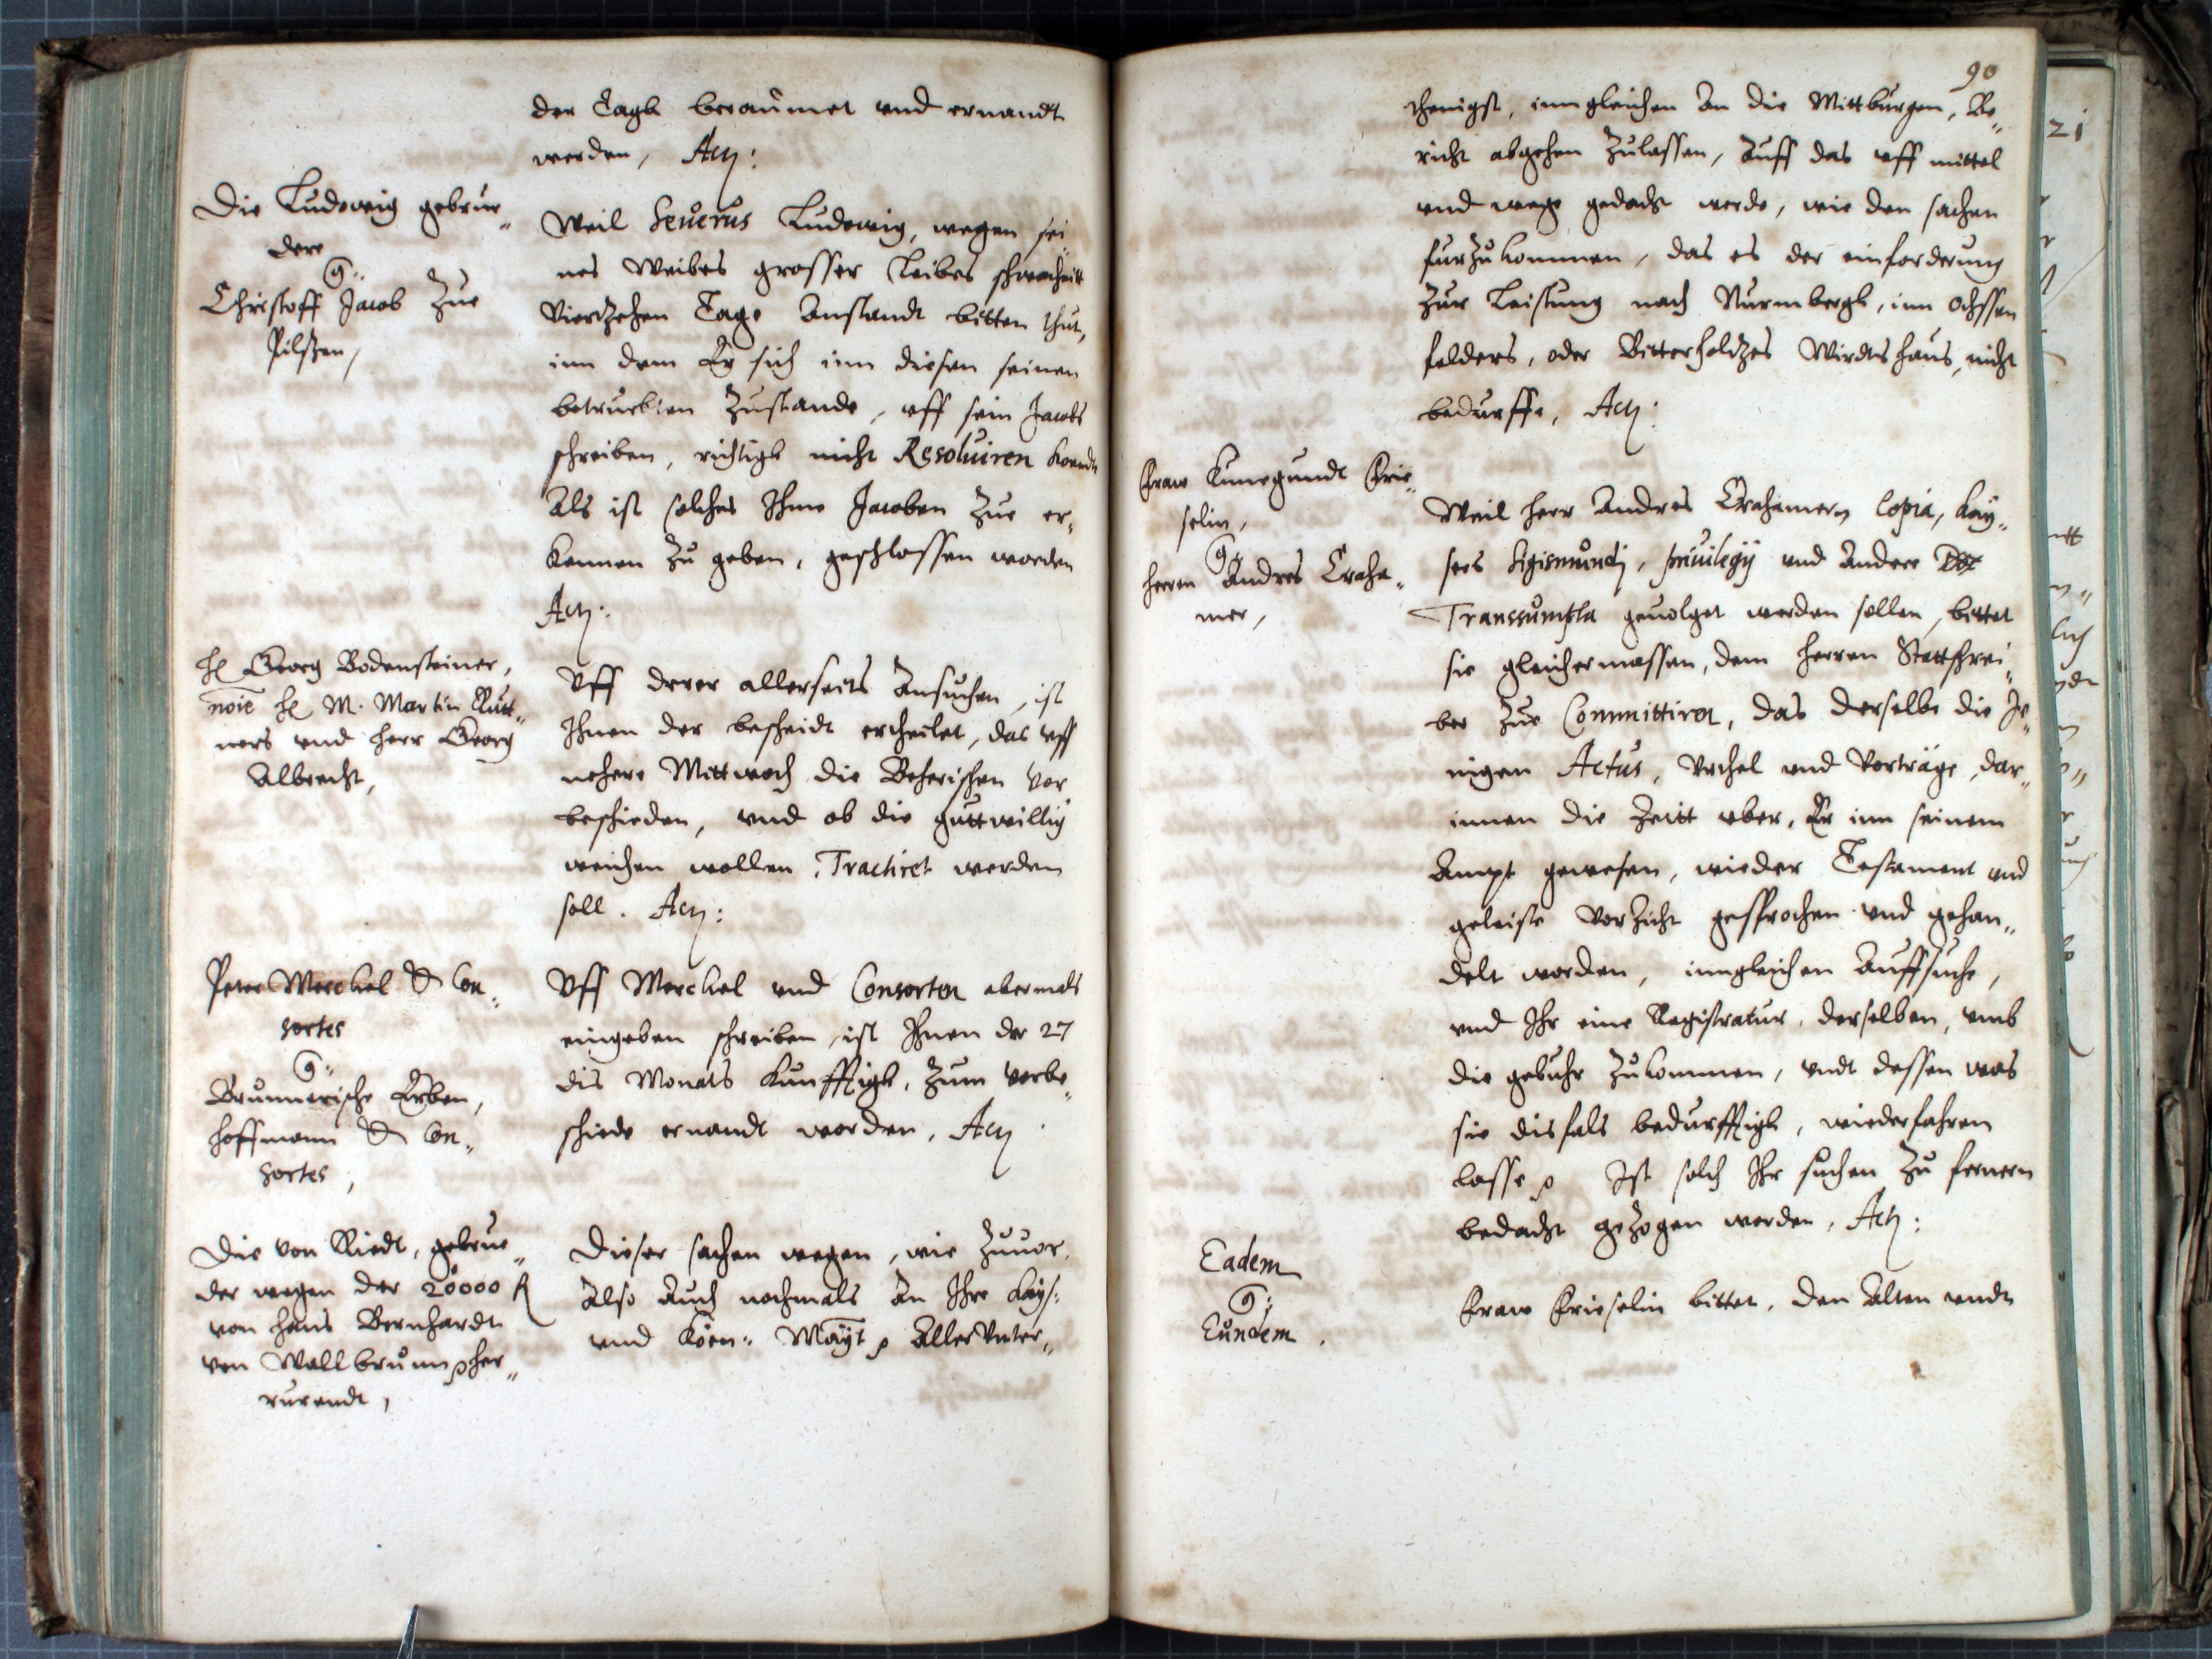 der Tagk beraumet vnd ernandt
werden, Actj:
Die Ludwig gebrue„
dere
Cª:
Christoff Jacob Zue
Pilßen,
Weil Seuerus Ludwig, wegen sei„
nes Weibes grosser Leibes schwacheitt
Viertzehen Tage Anstandt bitten thut,
inn dem Er sich inn diesen seinen
betrueblen Zustande, vff sein Jacobs
schreiben, richtigk nicht Resoluiren koendt
Als ist solches Ihme Jacoben Zue er„
kennen Zu geben, geschlossen worden
Actj:
H Georg Bodensteiner,
noie H M. Martin Rutt„
ners vnd Herr Georg
Albrecht,
Vff derer allerseits Ansuchen, ist
Ihnen der bescheidt ertheilet, das vff
nehere Mittwoch die Beherischen vor
bescheiden, vnd ob die guttwillig
weichen wollen, Tractiret werden
soll. Actj:
Peter Merckel & Con„
sortes
Cª:
Brunnerische Erben,
Hoffmann & Con„
sortes,
Vff Merckel vnd Consorten abermals
eingeben schreiben, ist Ihnen der 27
dis Monats kunfftigk, Zum verbe„
schiede ernandt worden, Actj
Die von Riedt, gebrue„
der wegen der 20000 fl
von Hans Bernhardt
von Wallbrunn her„
rurendt,
Dieser sachen wegen, wie Zuuor,
Also Auch nochmals An Ihre Kays:
vnd Köen: Mayt Aller Vnter„
90
thenigst, inngleichen An die Mittburgen, Be„
richt abgehen Zulassen, Auff das vff mittel
vnd wege gedacht werde, wie den sachen
furZukommen, das es der einforderung
Zur Leistung nach Nurmbergk, inn Ochssen
felders, oder Bitterholdzes Wirdtshaus, nicht
bedurffe, Actj:
Fraw Kunegundt Frie„
selin,
Cª:
Herrn Andres Craha„
mer,
Weil Herr Andres Crahamern Copia, Kay„
sers Sigismundj, priuilegij vnd Andere
Transsumpta geuolget werden sollen, bittet
sie gleichermassen, dem Herren Stattschrei„
ber Zue Committiren, das derselbe die Je„
nigen Actus, Vrthel vnd Vorträge, dar„
innen die Zeitt vber, Er inn seinem
Ampt gewesen, wieder Testament vnd
geleiste VorZicht gesprochen vnd gehan„
delt worden, inngleichen Auffsuche,
vnd Ihr eine Registratur, derselben, vmb
die gebuhr Zukommen, vndt dessen was
sie disfals bedurfftigk, wiederfahren
lasse Ist solch Ihr suchen Zu fernern
bedacht geZogen worden, Actj:
Eadem
Cª:
Eundem.
Fraw Frieselin bittet, den Alten vndt